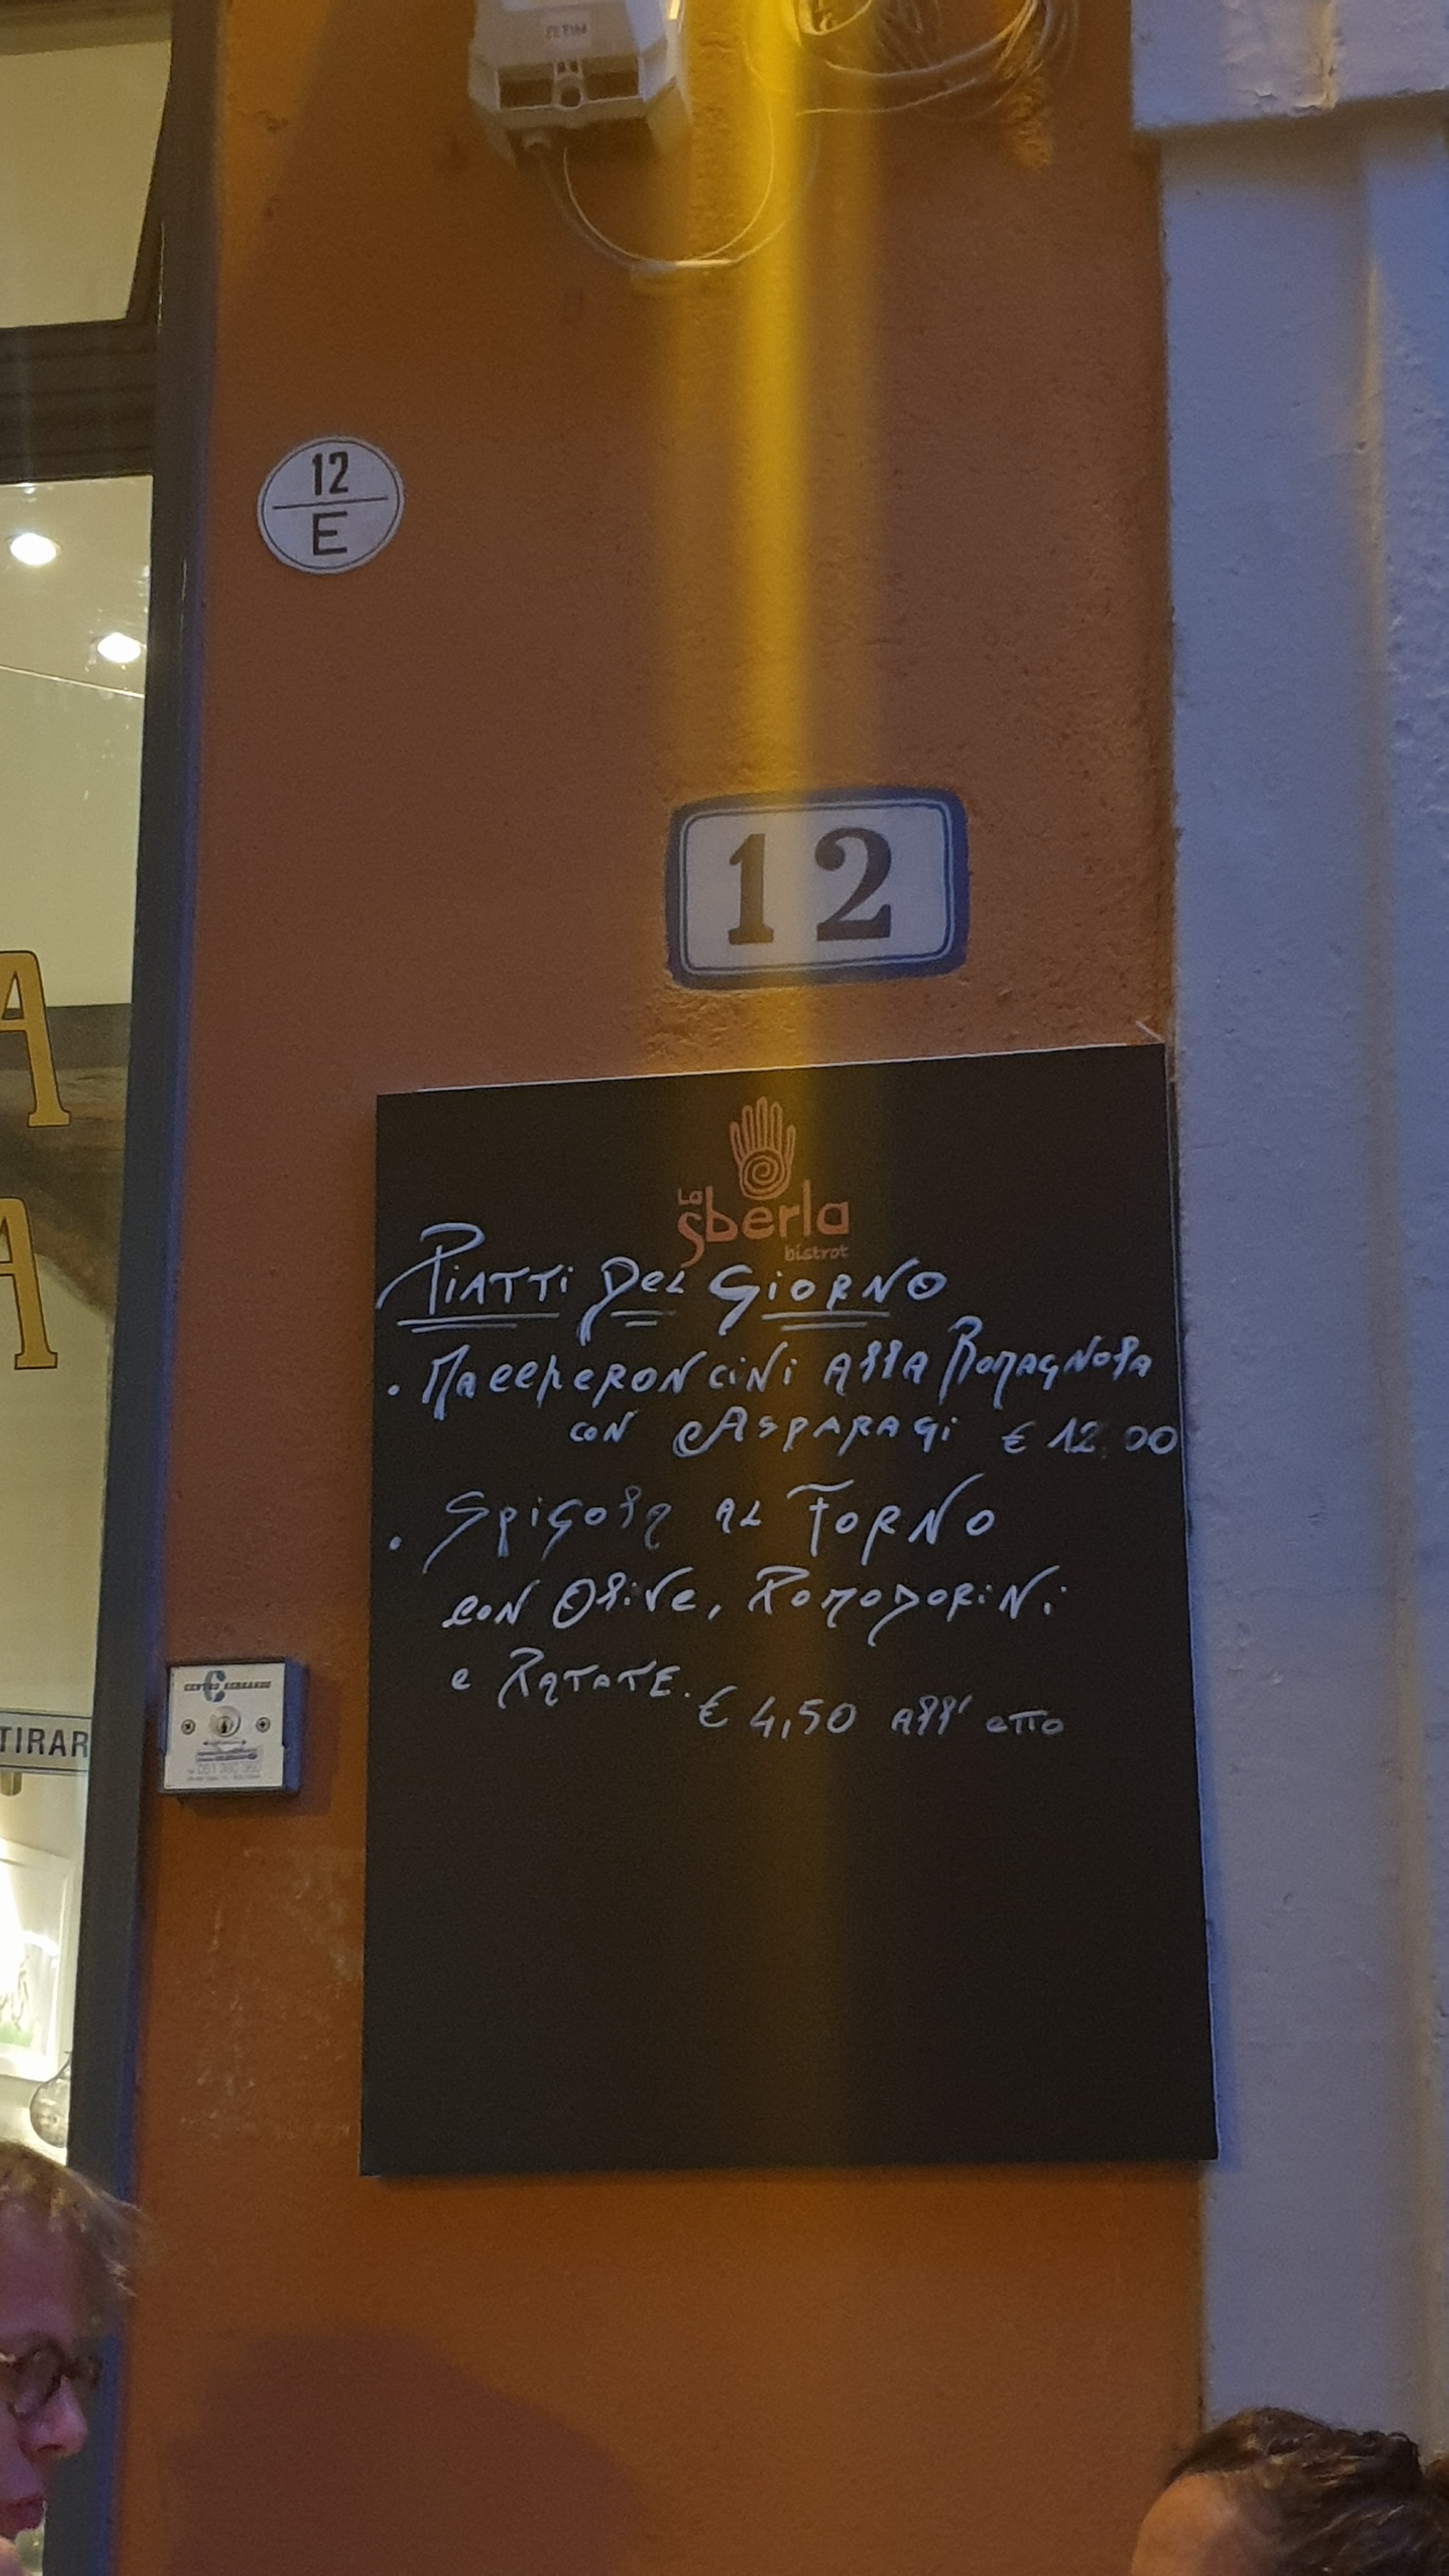 12
E
12
A
A
La
Sberla
bistrot
PIATTI DEL GIORNO
• MACCHERONCINI ALLA ROMAGNOLA
CON ASPARAGI € 12,00
• SPIGOLA AL FORNO
CON OLIVE, POMODORINI
e PATATE.
€ 4,50 ALL' eTTo
TIRAR